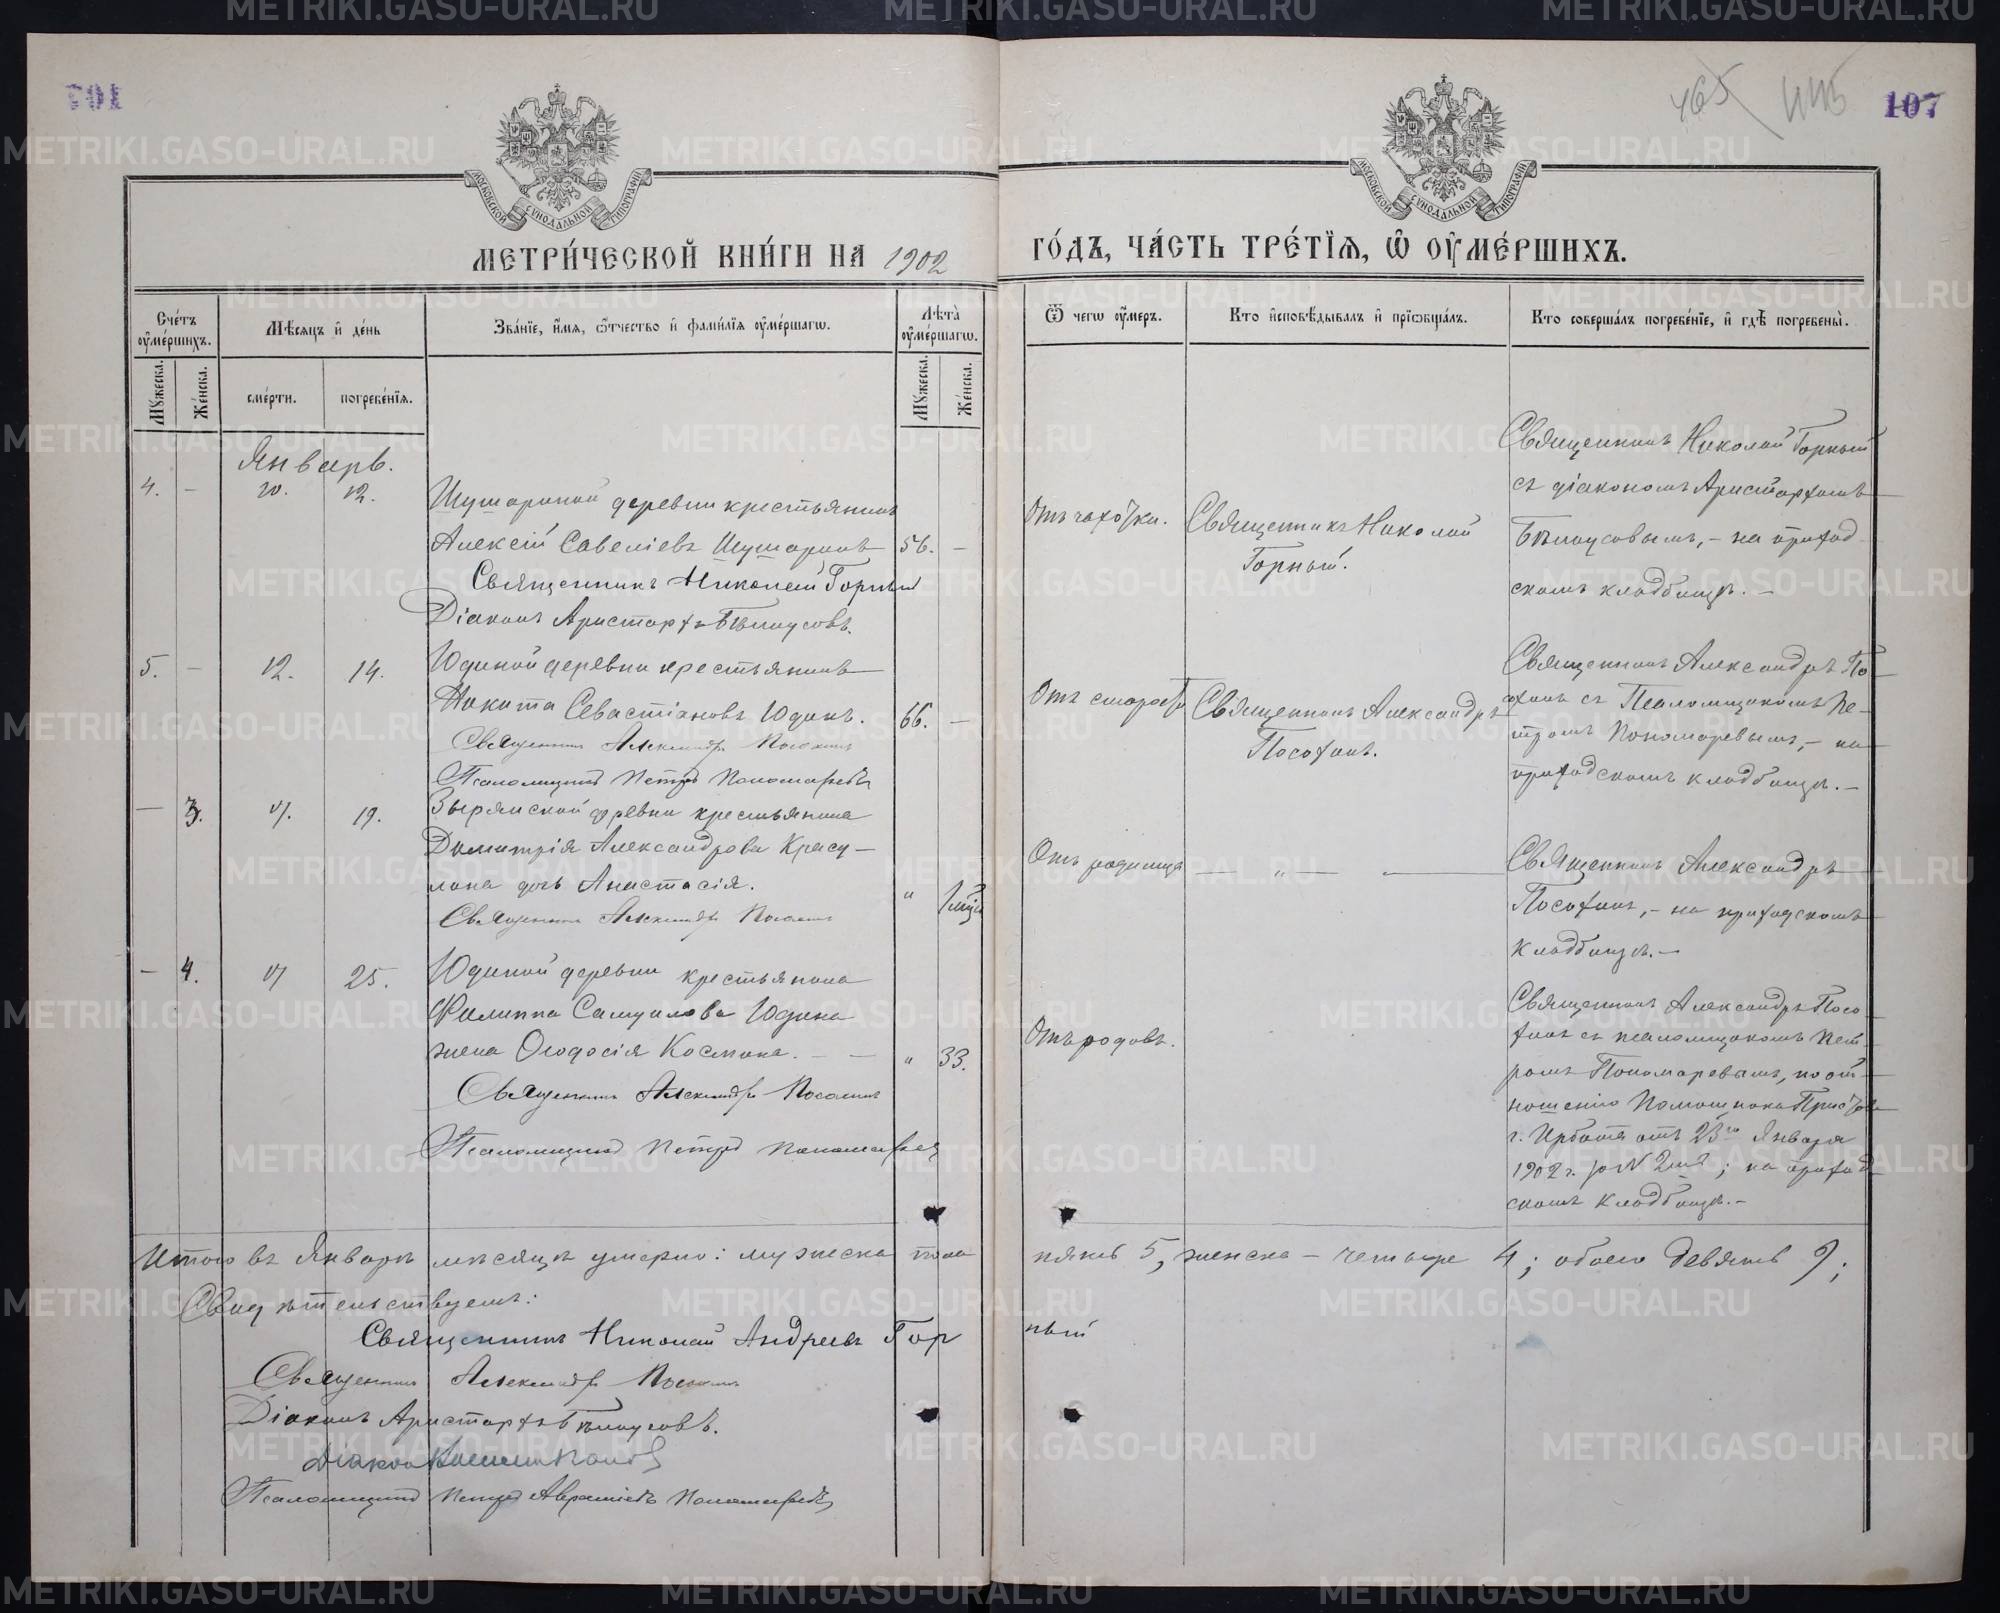 107
465
107
МОСКОВСКОЙ СѴНОДАЛЬНОЙ ТИПОГРАФІИ
МОСКОВСКОЙ СѴНОДАЛЬНОЙ ТИПОГРАФІИ
МЕТРИ́ЧЕСКОЙ КНИ́ГИ НА 1902 ГО́ДЪ, ЧА́СТЬ ТРЕ́ТЇѦ, Ѡ ОУ҆МЕ́РШИХЪ.
Сче́тъ оу҆ме́ршихъ.
Мѣ́сѧцъ и҆ де́нь
Зва́нїе, и҆́мѧ, ѻ҆́тчество и҆ фами́лїѧ оу҆ме́ршагѡ.
Лѣта̀ оу҆ме́ршагѡ.
Ѿ чегѡ̀ оу҆́меръ.
Кто̀ и҆сповѣ́дывалъ и҆ прїѡбща́лъ.
Кто̀ соверша́лъ погребе́нїе, и҆ гдѣ̀ погребены̀.
Мꙋ́жеска.
Же́нска.
сме́рти.
погребе́нїѧ.
Мꙋ́жеска.
Же́нска.
Январь.
4. – 10. 12.
Шушариной деревни крестьянинъ
Алексій Савеліевъ Шушаринъ 56. –
Священникъ Николай Горный
Діаконъ Аристархъ Бѣлоусовъ.
Отъ чахотки.
Священникъ Николай
Горный.
Священникъ Николай Горный
съ діакономъ Аристархомъ
Бѣлоусовымъ, – на приход
скомъ кладбищѣ. –
5. – 12. 14.
Юдиной деревни крестьянинъ
Никита Севастіановъ Юдинъ. 66. –
Священникъ Александръ Посохинъ
Псаломщикъ Петръ Пономаревъ
Отъ старости
Священникъ Александръ
Посохинъ.
Священникъ Александръ По-
сохинъ съ Псаломщикомъ Пе-
тромъ Пономаревымъ, – на
приходскомъ кладбищѣ. –
– 3. 17. 19.
Зырянской деревни крестьянина
Димитрія Александрова Красу-
лина дочь Анастасія. " 1 мѣс.
Священникъ Александръ Посохинъ
Отъ родимца
– " – "
Священникъ Александръ
Посохинъ, – на приходскомъ
кладбищѣ. –
– 4. 17 25.
Юдиной деревни крестьянина
Филиппа Самуилова Юдина
жена Ѳеодосія Космина. – – " 33.
Священникъ Александръ Посохинъ
Псаломщикъ Петръ Пономаревъ
Отъ родовъ.
Священникъ Александръ Посо-
хинъ съ псаломщикомъ Пет-
ромъ Пономаревымъ, по от-
ношенію Помощника Пристава
г. Ирбита отъ 23го Января
1902 г. за №; на приход
скомъ кладбищѣ. –
Итого въ Январѣ мѣсяцѣ умерло: мужеска пола пять 5, женска – четыре 4; обоего девять 9;
Свидѣтельствуемъ:
Священникъ Николай Андреевъ Горный
Священникъ Александръ Посохинъ
Діаконъ Аристархъ Бѣлоусовъ.
Діаконъ
Псаломщикъ Петръ Авраміевъ Пономаревъ
METRIKI.GASO-URAL.RU